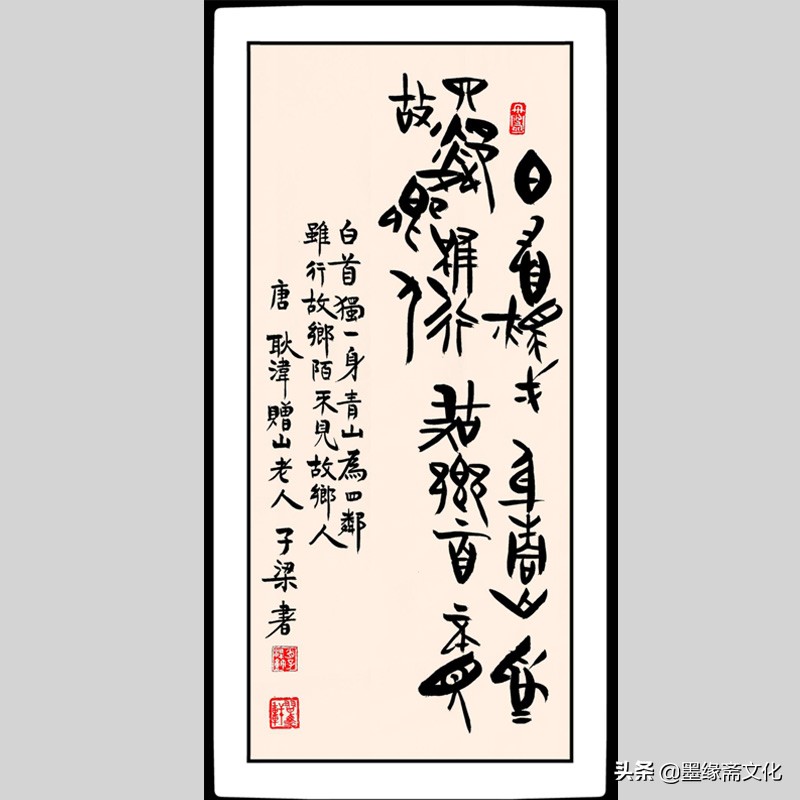 白首獨弌身青山為
四鄰雖行故鄉陌不見
故鄉人
白首獨一身青山為四鄰
雖行故鄉陌不見故鄉人
唐 耿湋贈山老人 子梁書
头条 @墨缘斋文化